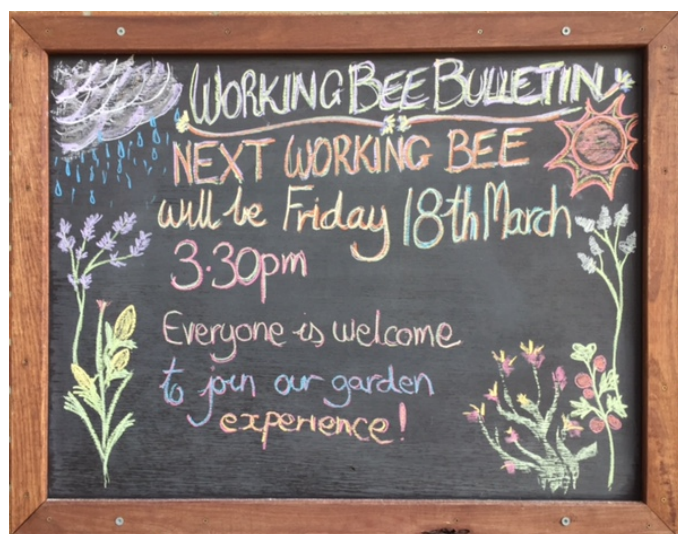 WORKING BEE BULLETIN
NEXT WORKING BEE
will be Friday 18th March
3.30pm
Everyone is welcome
to join our garden
experience!